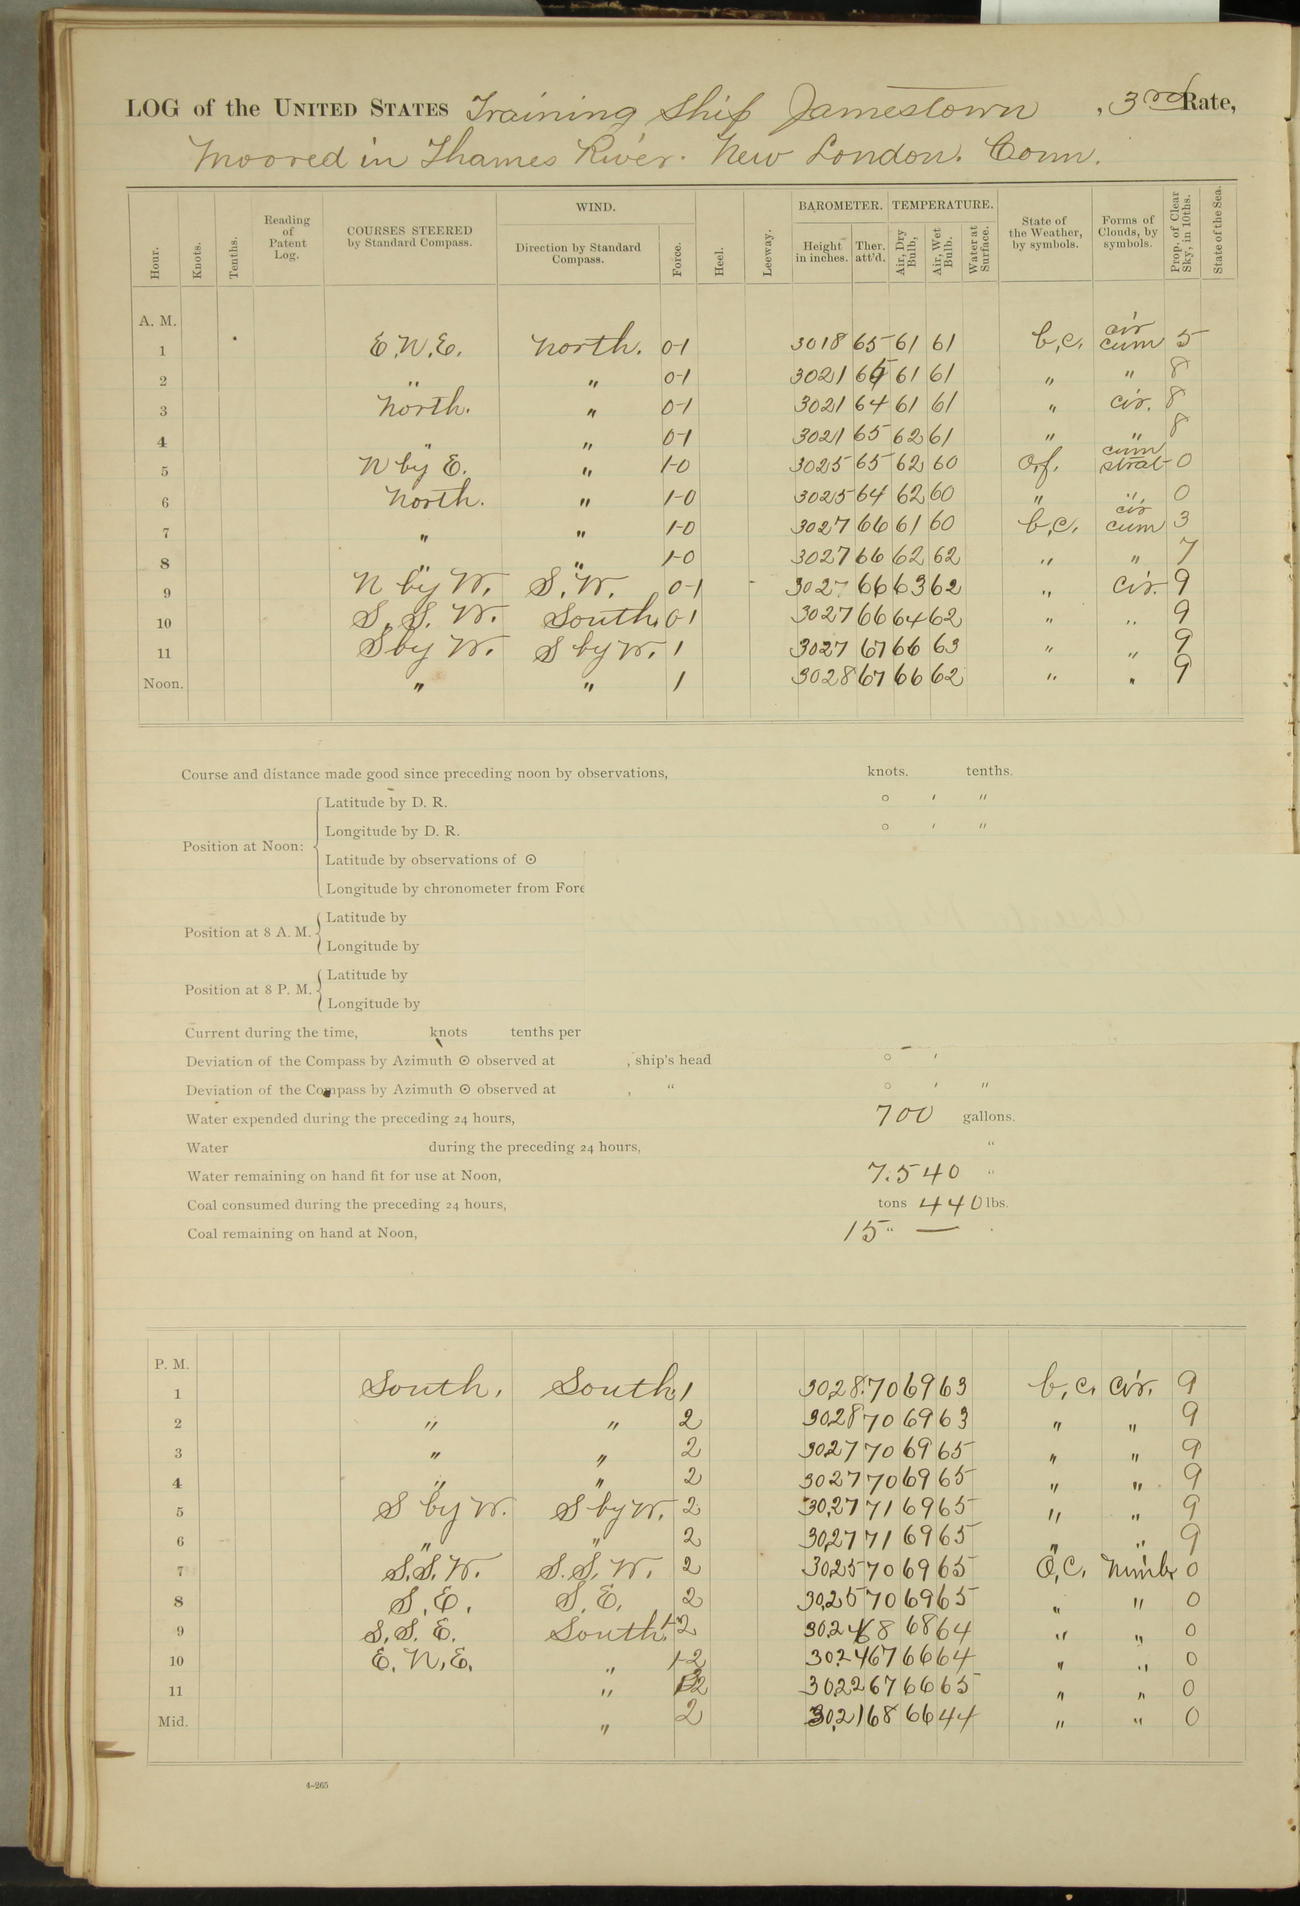 LOG of the UNITED STATES Training Ship Jamestown , 3rd Rate,
Moored in Thames River. New London. Conn.
Hour. Knots. Tenths. Reading of Patent Log. COURSES STEERED by Standard Compass. WIND. Direction by Standard Compass. Force. Heel. Leeway. BAROMETER. Height in inches. Ther. att'd. TEMPERATURE. Air, Dry Bulb, Air, Wet Bulb. Water at Surface. State of the Weather, by symbols. Forms of Clouds, by symbols. Prop. of Clear Sky, in 10ths. State of the Sea.
A. M.
1 E.N.E. North. 0-1 3018 65 61 61 b,c. cir cum 5
2 " " 0-1 3021 65 61 61 " " 8
3 North. " 0-1 3021 64 61 61 " cir. 8
4 " " 0-1 3021 65 62 61 " " 8
5 N by E. " 1-0 3025 65 62 60 o,f. cum strat 0
6 North. " 1-0 3025 64 62 60 " " 0
7 " " 1-0 3027 66 61 60 b,c. cir cum 3
8 " " 1-0 3027 66 62 62 " " 7
9 N by W. S.W. 0-1 3027 66 63 62 " cir. 9
10 S.S.W. South. 01 3027 66 64 62 " " 9
11 S by W. S by W. 1 3027 67 66 63 " " 9
Noon. " " 1 3028 67 66 62 " " 9
Course and distance made good since preceding noon by observations, knots. tenths.
Position at Noon: Latitude by D. R. ° ′ ″
Longitude by D. R. ° ′ ″
Latitude by observations of ⊙
Longitude by chronometer from Fore
Position at 8 A. M. Latitude by
Longitude by
Position at 8 P. M. Latitude by
Longitude by
Current during the time, knots tenths per
Deviation of the Compass by Azimuth ⊙ observed at , ship's head ° ′
Deviation of the Compass by Azimuth ⊙ observed at , " ° ′ ″
Water expended during the preceding 24 hours, 700 gallons.
Water during the preceding 24 hours, "
Water remaining on hand fit for use at Noon, 7.540 "
Coal consumed during the preceding 24 hours, tons 440 lbs.
Coal remaining on hand at Noon, 15 " —
P. M.
1 South. South 1 30,28 70 69 63 b,c. cir. 9
2 " " 2 30,28 70 69 63 " " 9
3 " " 2 30,27 70 69 65 " " 9
4 " " 2 3027 70 69 65 " " 9
5 S by W. S by W. 2 30,27 71 69 65 " " 9
6 " " 2 30,27 71 69 65 " " 9
7 S.S.W. S.S.W. 2 30,25 70 69 65 O,C. Nimb 0
8 S.E. S.E. 2 30,25 70 69 65 " " 0
9 S.S.E. South. 1-2 30,24 68 68 64 " " 0
10 E.N.E. " 1-2 30,24 67 66 64 " " 0
11 " 2 30,22 67 66 65 " " 0
Mid. " 2 30,21 68 66 44 " " 0
4-265